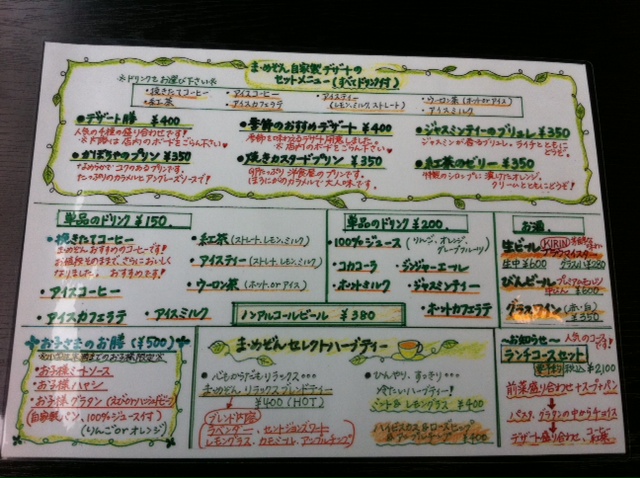 ま・めぞん 自家製デザートの
セットメニュー(すべてドリンク付)
※ドリンクをお選び下さい※
・挽きたてコーヒー ・アイスコーヒー ・アイスティー ・ウーロン茶(ホット or アイス)
・紅茶 ・アイスカフェラテ (レモン、ミルク、ストレート) ・アイスミルク
・デザート膳 ¥400
人気の4種の盛り合わせです!
※内容は店内のボードをごらん下さい
・季節のおすすめデザート ¥400
季節を味わえるデザート用意しました。
※店内のボードをごらん下さい
・ジャスミンティーのブリュレ ¥350
ジャスミンが香るブリュレ。ライチとともに
どうぞ。
・かぼちゃのプリン ¥350
なめらかでコクのあるプリンです。
たっぷりのカラメルとアングレーズソースで!
・焼きカスタードプリン ¥350
卵たっぷり洋食屋のプリンです。
ほろにがのカラメルで大人味です。
・紅茶のゼリー ¥350
シロップに漬けたオレンジ、
クリームとともにどうぞ!
単品のドリンク ¥150.
・挽きたてコーヒー
おすすめのコーヒーです!
さらにおいしく
なりました。おすすめです!
・アイスコーヒー
・アイスカフェラテ
・紅茶(ストレート、レモン、ミルク)
・アイスティー(ストレート、レモン、ミルク)
・ウーロン茶(ホット or アイス)
・アイスミルク
単品のドリンク ¥200.
・100%ジュース(りんご、オレンジ、
グレープフルーツ)
・コカコーラ ・ジンジャーエール
・ホットミルク ・ジャスミンティー
・ホットカフェラテ
ノンアルコールビール ¥380
お酒
生ビール KIRIN
ブラウマイスター
生中 ¥600 グラス生 ¥280
びんビール プレミアムモルツ
中びん ¥600
グラスワイン(赤・白)
¥350
お子さまのお膳(¥500)
・お子様ミートソース
・お子様ハヤシ
・お子様グラタン
(自家製パン、100%ジュース付)
(りんご or オレンジ)
ま・めぞんセレクトハーブティー
・心もからだもリラックス…
ま・めぞん リラックスブレンドティー
¥400(HOT)
ブレンド内容
ラベンダー、セントジョンズワート
レモングラス、カモミール、アップルチップ
・ひんやり、すっきり…
冷たいハーブティー!
ミント&レモングラス ¥400
ハイビスカス&ローズヒップ
&アップルチップ ¥400
~お知らせ~ 人気のコース
です!
ランチコースセット
要予約 税込 ¥2,100
前菜盛り合わせ→スープ→パン
→パスタ、グラタンの中から1チョイス
→デザート盛り合わせ、コーヒー
紅茶